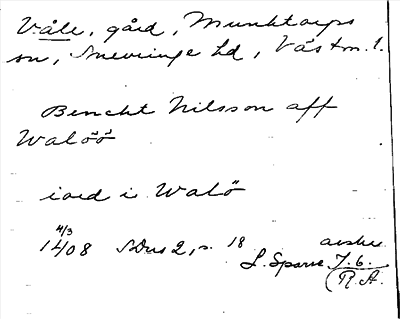 Våle, gård, Munktorps
sn, Snevringe hd, Västm. l.
Bencht Nilsson aff
Walöö
iord i Walö
4/3
1408 SDns 2, s. 18 avskr.
L. Sparre J. 6.
(R.A.